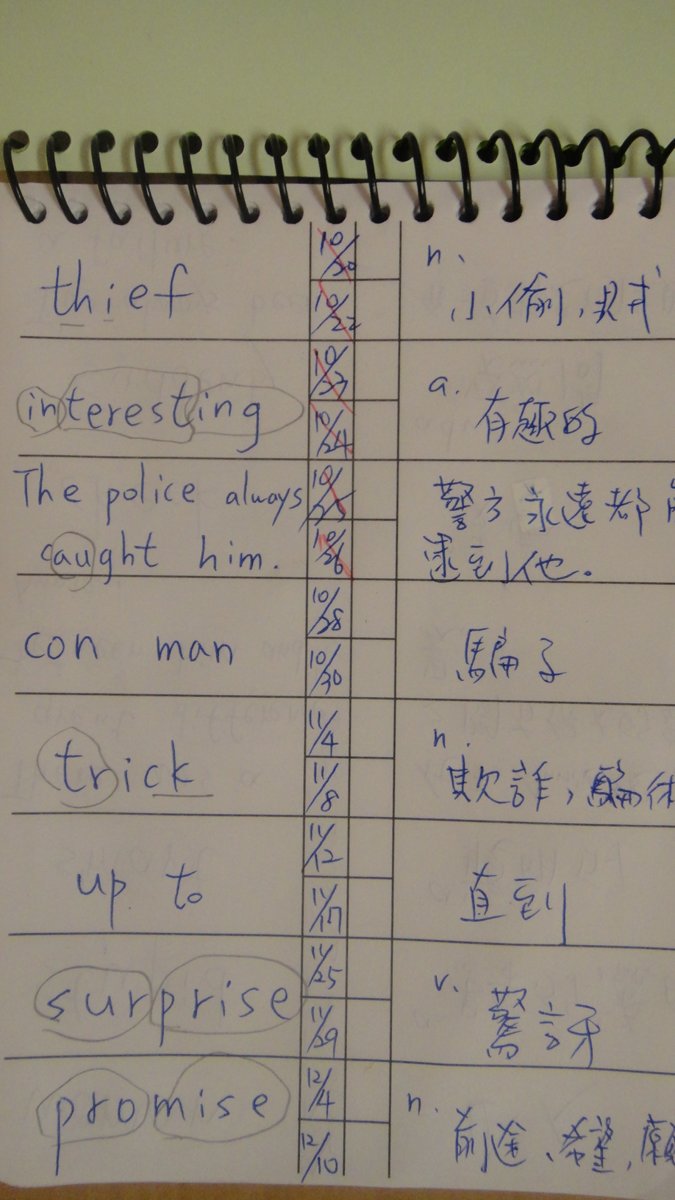 thief
10/20
10/22
n.
小偷,
interesting
10/23
10/24
a.
有趣的
The police always
caught him.
10/25
10/26
警方永遠都
逮到他。
con man
10/28
10/30
騙子
trick
11/4
11/8
n.
欺詐,騙
up to
11/12
11/17
直到
surprise
11/25
11/29
v.
驚訝
promise
12/4
12/10
n.
前途,希望,